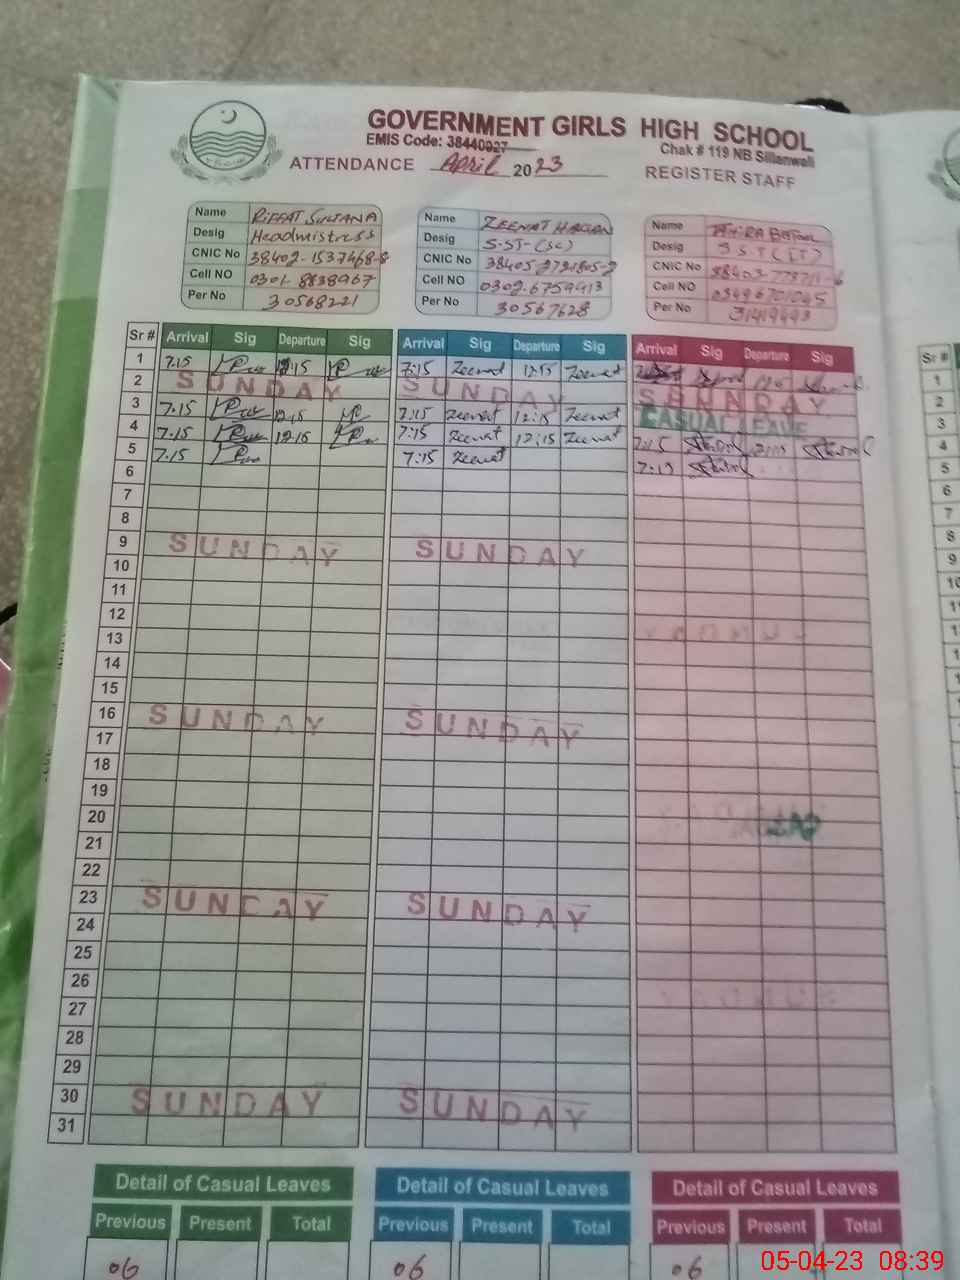 GOVERNMENT GIRLS HIGH SCHOOL
EMIS Code: 38440027
Chak # 119 NB Sillanwali
ATTENDANCE April 2023 REGISTER STAFF
Name RIFFAT SULTANA
Desig Headmistress
CNIC No 38402-1537468-8
Cell NO 0301-8838967
Per No 30568221
Name ZEENAT HASSAN
Desig S.ST-(SC)
CNIC No
Cell NO 0302-6759913
Per No 30567628
Name
Desig S.S.T (IT)
CNIC No
Cell NO 03496701045
Per No 31419493
Sr # Arrival Sig Departure Sig Arrival Sig Departure Sig Arrival Sig Departure Sig Sr #
1 7.15 12.15 7:15 Zeenat 12:15 Zeenat 1
2 SUNDAY SUNDAY SUNDAY 2
3 7.15 12.15 7:15 Zeenat 12:15 Zeenat CASUAL LEAVE 3
4 7.15 12.15 7:15 Zeenat 12:15 Zeenat 7:15 4
5 7.15 7:15 Zeenat 7:15 5
6 6
7 7
8 8
9 SUNDAY SUNDAY 9
10 10
11
12
13
14
15
16 SUNDAY SUNDAY
17
18
19
20
21
22
23 SUNDAY SUNDAY
24
25
26
27
28
29
30 SUNDAY SUNDAY
31
Detail of Casual Leaves Detail of Casual Leaves Detail of Casual Leaves
Previous Present Total Previous Present Total Previous Present Total
06 06 06
05-04-23 08:39